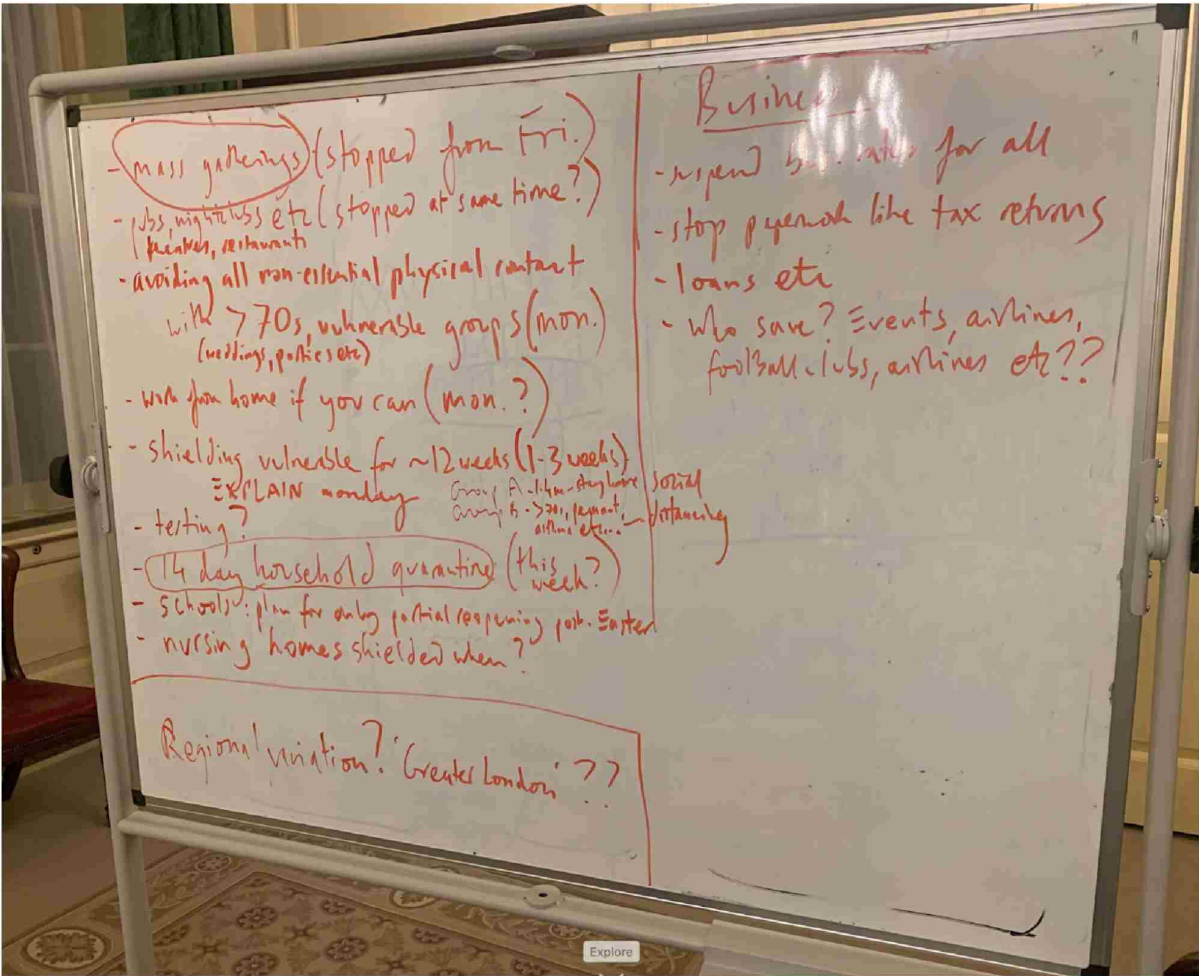 - mass gatherings (stopped from Fri.)
- pubs, nightclubs etc (stopped at same time?)
(theatres, restaurants
- avoiding all non-essential physical contact
with >70s, vulnerable groups (mon.)
(weddings, parties etc)
- work from home if you can (mon.?)
- shielding vulnerable for ~12 weeks (1-3 weeks)
EXPLAIN monday
Group A - 1.4m - stay home
Group B - >70s, pregnant,
asthma etc...
social
distancing
- testing?
- 14 day household quarantine (this
week?)
- schools: plan for only partial reopening post-Easter
- nursing homes shielded when?
Regional variation? 'Greater London' ??
Business
- suspend rates for all
- stop like tax returns
- loans etc
- who save? Events, airlines,
football clubs, airlines etc??
Explore